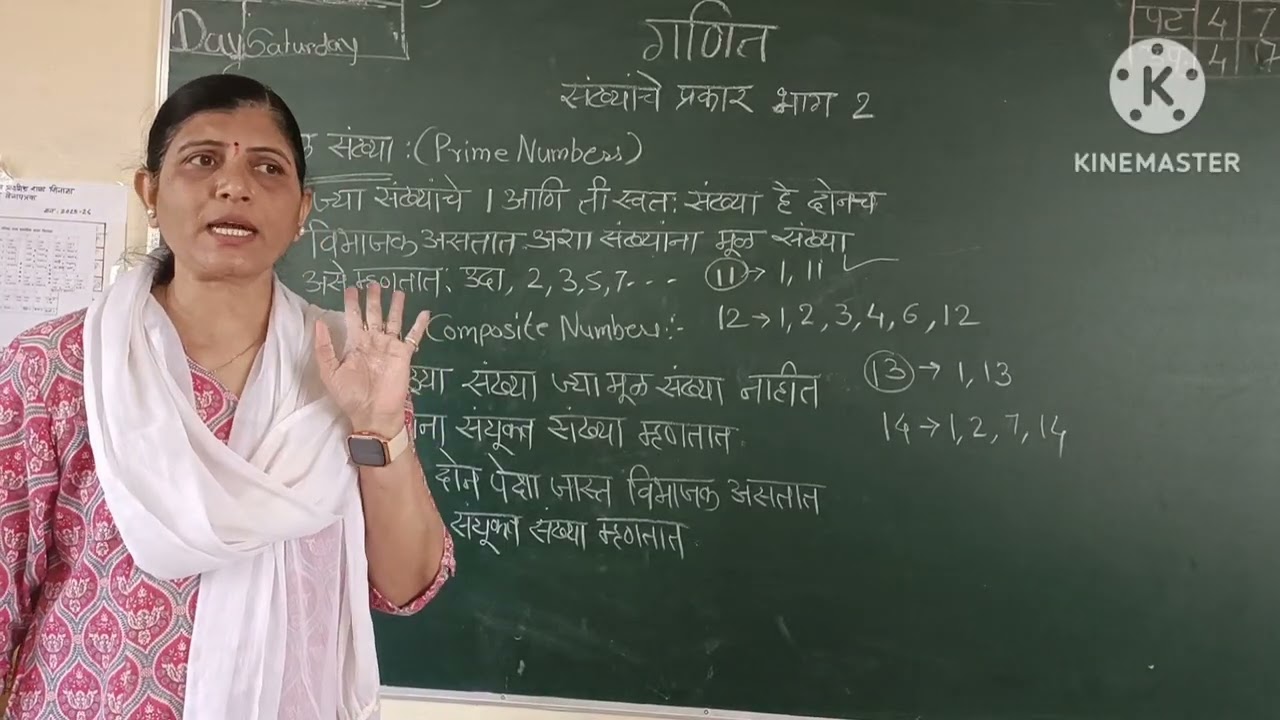 Day Saturday
गणित
संख्यांचे प्रकार भाग 2
पट 4 7
4 7
K
KINEMASTER
संख्या : (Prime Numbers)
ज्या संख्यांचे 1 आणि ती स्वतः संख्या हे दोनच
विभाजक असतात अशा संख्यांना मूळ संख्या
असे म्हणतात. उदा, 2, 3, 5, 7 - - - 11 → 1, 11
Composite Numbers:- 12 → 1, 2, 3, 4, 6, 12
संख्या ज्या मूळ संख्या नाहीत 13 → 1, 13
संयुक्त संख्या म्हणतात. 14 → 1, 2, 7, 14
दोन पेक्षा जास्त विभाजक असतात
संयुक्त संख्या म्हणतात.